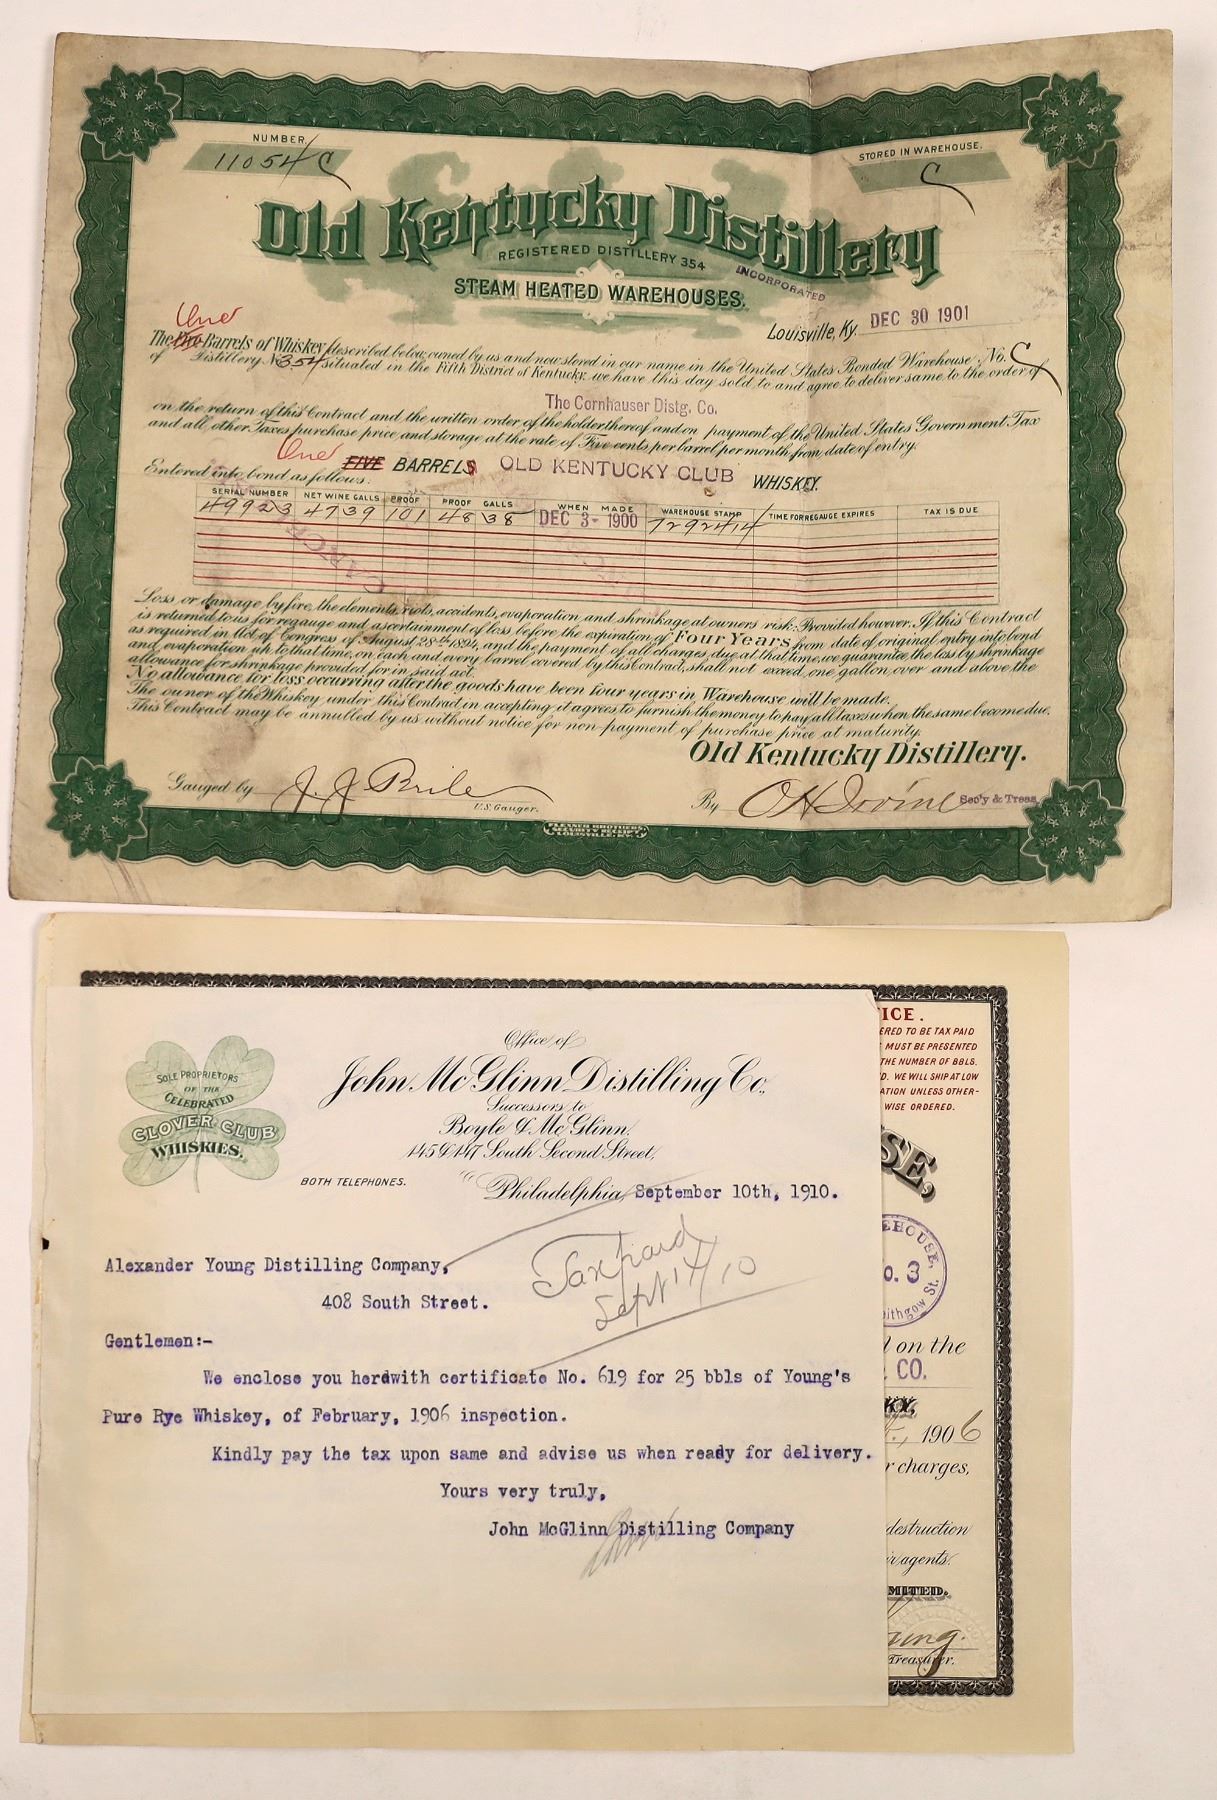 NUMBER.
11054 C
STORED IN WAREHOUSE.
C
Old Kentucky Distillery
REGISTERED DISTILLERY 354
INCORPORATED
STEAM HEATED WAREHOUSES.
Louisville, Ky. DEC 30 1901
One
The Five Barrels of Whiskey described below, owned by us and now stored in our name in the United States Bonded Warehouse No. C
of Distillery No 354 situated in the Fifth District of Kentucky, we have this day sold to and agree to deliver same to the order of
The Cornhauser Distg. Co.
on the return of this Contract and the written order of the holder thereof and on payment of the United States Government Tax
and all other Taxes purchase price and storage at the rate of Five cents per barrel per month from date of entry.
One
Entered into bond as follows: FIVE BARRELS OLD KENTUCKY CLUB WHISKEY.
SERIAL NUMBER NET WINE GALLS PROOF PROOF GALLS WHEN MADE WAREHOUSE STAMP TIME FOR REGAUGE EXPIRES TAX IS DUE
49923 47 39 101 48 38 DEC 3- 1900 7292414
Loss or damage by fire, the elements, riots, accidents, evaporation and shrinkage at owners risk. Provided however, If this Contract
is returned to us for regauge and ascertainment of loss before the expiration of Four Years from date of original entry into bond
as required in Act of Congress of August 28th 1894, and the payment of all charges due at that time, we guarantee the loss by shrinkage
and evaporation up to that time, on each and every barrel covered by this Contract, shall not exceed one gallon over and above the
allowance for shrinkage provided for in said act.
No allowance for loss occurring after the goods have been four years in Warehouse will be made.
The owner of the Whiskey under this Contract in accepting it agrees to furnish the money to pay all taxes when the same become due.
This Contract may be annulled by us without notice for non-payment of purchase price at maturity.
Old Kentucky Distillery.
Gauged by J. J. Brile
U.S. Gauger.
By O H Irvine Sec'y & Treas
FLEXNER BROTHERS
SECURITY RECEIPT
LOUISVILLE, KY.
SOLE PROPRIETORS
OF THE
CELEBRATED
CLOVER CLUB
WHISKIES.
Office of
John McGlinn Distilling Co.,
Successors to
Boyle & McGlinn.
145 & 147 South Second Street,
BOTH TELEPHONES.
Philadelphia, September 10th, 1910.
Alexander Young Distilling Company,
408 South Street.
Tax paid
Sept 14/10
Gentlemen:-
We enclose you herewith certificate No. 619 for 25 bbls of Young's
Pure Rye Whiskey, of February, 1906 inspection.
Kindly pay the tax upon same and advise us when ready for delivery.
Yours very truly,
John McGlinn Distilling Company
ICE.
ERED TO BE TAX PAID
MUST BE PRESENTED
THE NUMBER OF BBLS.
D. WE WILL SHIP AT LOW
ATION UNLESS OTHER-
WISE ORDERED.
SE,
EHOUSE,
O. 3
ithgow St.
on the
CO.
KY,
1906
r charges,
destruction
ir agents.
MITED.
ung.
Treasurer.